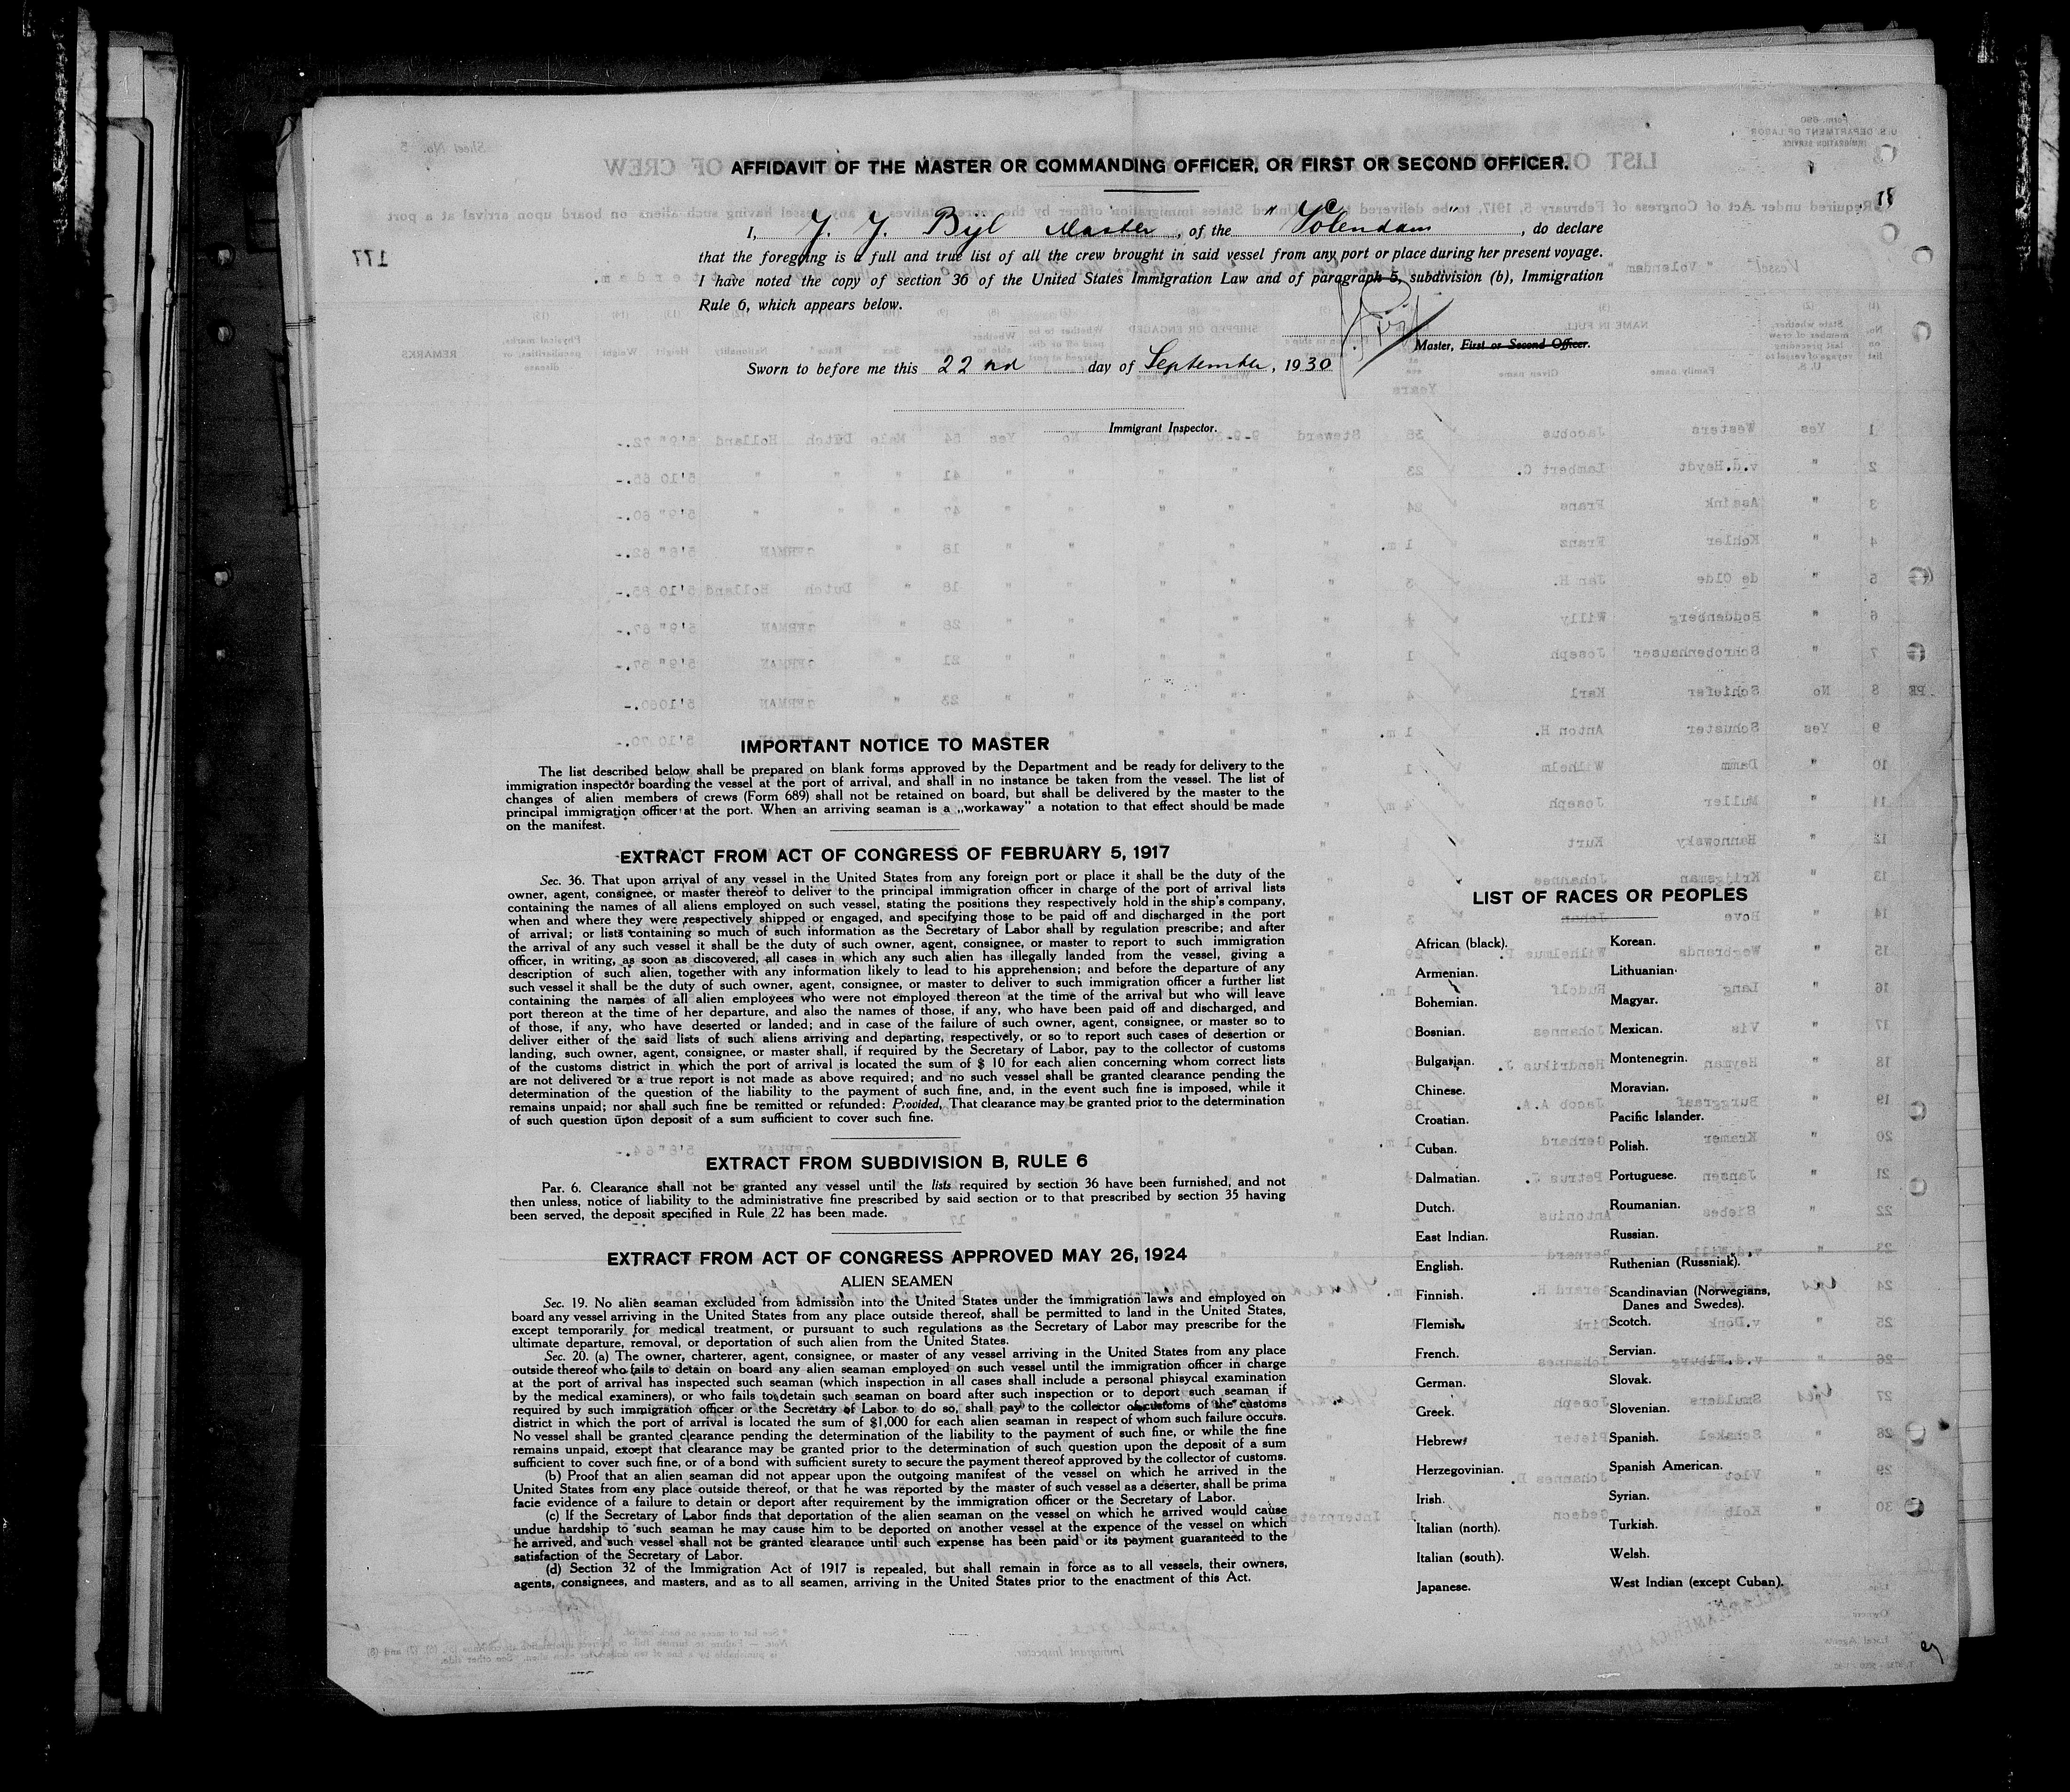 AFFIDAVIT OF THE MASTER OR COMMANDING OFFICER, OR FIRST OR SECOND OFFICER.
I, J. J. Bijl Master, of the "Volendam", do declare
that the foregoing is a full and true list of all the crew brought in said vessel from any port or place during her present voyage.
I have noted the copy of section 36 of the United States Immigration Law and of paragraph 5, subdivision (b), Immigration
Rule 6, which appears below.
Master, First or Second Officer.
Sworn to before me this 22nd day of September, 1930
Immigrant Inspector.
177
IMPORTANT NOTICE TO MASTER
The list described below shall be prepared on blank forms approved by the Department and be ready for delivery to the
immigration inspector boarding the vessel at the port of arrival, and shall in no instance be taken from the vessel. The list of
changes of alien members of crews (Form 689) shall not be retained on board, but shall be delivered by the master to the
principal immigration officer at the port. When an arriving seaman is a „workaway" a notation to that effect should be made
on the manifest.
EXTRACT FROM ACT OF CONGRESS OF FEBRUARY 5, 1917
Sec. 36. That upon arrival of any vessel in the United States from any foreign port or place it shall be the duty of the
owner, agent, consignee, or master thereof to deliver to the principal immigration officer in charge of the port of arrival lists
containing the names of all aliens employed on such vessel, stating the positions they respectively hold in the ship's company,
when and where they were respectively shipped or engaged, and specifying those to be paid off and discharged in the port
of arrival; or lists containing so much of such information as the Secretary of Labor shall by regulation prescribe; and after
the arrival of any such vessel it shall be the duty of such owner, agent, consignee, or master to report to such immigration
officer, in writing, as soon as discovered, all cases in which any such alien has illegally landed from the vessel, giving a
description of such alien, together with any information likely to lead to his apprehension; and before the departure of any
such vessel it shall be the duty of such owner, agent, consignee, or master to deliver to such immigration officer a further list
containing the names of all alien employees who were not employed thereon at the time of the arrival but who will leave
port thereon at the time of her departure, and also the names of those, if any, who have been paid off and discharged, and
of those, if any, who have deserted or landed; and in case of the failure of such owner, agent, consignee, or master so to
deliver either of the said lists of such aliens arriving and departing, respectively, or so to report such cases of desertion or
landing, such owner, agent, consignee, or master shall, if required by the Secretary of Labor, pay to the collector of customs
of the customs district in which the port of arrival is located the sum of $ 10 for each alien concerning whom correct lists
are not delivered or a true report is not made as above required; and no such vessel shall be granted clearance pending the
determination of the question of the liability to the payment of such fine, and, in the event such fine is imposed, while it
remains unpaid; nor shall such fine be remitted or refunded: Provided, That clearance may be granted prior to the determination
of such question upon deposit of a sum sufficient to cover such fine.
EXTRACT FROM SUBDIVISION B, RULE 6
Par. 6. Clearance shall not be granted any vessel until the lists required by section 36 have been furnished, and not
then unless, notice of liability to the administrative fine prescribed by said section or to that prescribed by section 35 having
been served, the deposit specified in Rule 22 has been made.
EXTRACT FROM ACT OF CONGRESS APPROVED MAY 26, 1924
ALIEN SEAMEN
Sec. 19. No alien seaman excluded from admission into the United States under the immigration laws and employed on
board any vessel arriving in the United States from any place outside thereof, shall be permitted to land in the United States,
except temporarily for medical treatment, or pursuant to such regulations as the Secretary of Labor may prescribe for the
ultimate departure, removal, or deportation of such alien from the United States.
Sec. 20. (a) The owner, charterer, agent, consignee, or master of any vessel arriving in the United States from any place
outside thereof who fails to detain on board any alien seaman employed on such vessel until the immigration officer in charge
at the port of arrival has inspected such seaman (which inspection in all cases shall include a personal phisycal examination
by the medical examiners), or who fails to detain such seaman on board after such inspection or to deport such seaman if
required by such immigration officer or the Secretary of Labor to do so, shall pay to the collector of customs of the customs
district in which the port of arrival is located the sum of $1,000 for each alien seaman in respect of whom such failure occurs.
No vessel shall be granted clearance pending the determination of the liability to the payment of such fine, or while the fine
remains unpaid, except that clearance may be granted prior to the determination of such question upon the deposit of a sum
sufficient to cover such fine, or of a bond with sufficient surety to secure the payment thereof approved by the collector of customs.
(b) Proof that an alien seaman did not appear upon the outgoing manifest of the vessel on which he arrived in the
United States from any place outside thereof, or that he was reported by the master of such vessel as a deserter, shall be prima
facie evidence of a failure to detain or deport after requirement by the immigration officer or the Secretary of Labor.
(c) If the Secretary of Labor finds that deportation of the alien seaman on the vessel on which he arrived would cause
undue hardship to such seaman he may cause him to be deported on another vessel at the expence of the vessel on which
he arrived, and such vessel shall not be granted clearance until such expense has been paid or its payment guaranteed to the
satisfaction of the Secretary of Labor.
(d) Section 32 of the Immigration Act of 1917 is repealed, but shall remain in force as to all vessels, their owners,
agents, consignees, and masters, and as to all seamen, arriving in the United States prior to the enactment of this Act.
LIST OF RACES OR PEOPLES
African (black).
Armenian.
Bohemian.
Bosnian.
Bulgarian.
Chinese.
Croatian.
Cuban.
Dalmatian.
Dutch.
East Indian.
English.
Finnish.
Flemish.
French.
German.
Greek.
Hebrew.
Herzegovinian.
Irish.
Italian (north).
Italian (south).
Japanese.
Korean.
Lithuanian.
Magyar.
Mexican.
Montenegrin.
Moravian.
Pacific Islander.
Polish.
Portuguese.
Roumanian.
Russian.
Ruthenian (Russniak).
Scandinavian (Norwegians,
Danes and Swedes).
Scotch.
Servian.
Slovak.
Slovenian.
Spanish.
Spanish American.
Syrian.
Turkish.
Welsh.
West Indian (except Cuban).